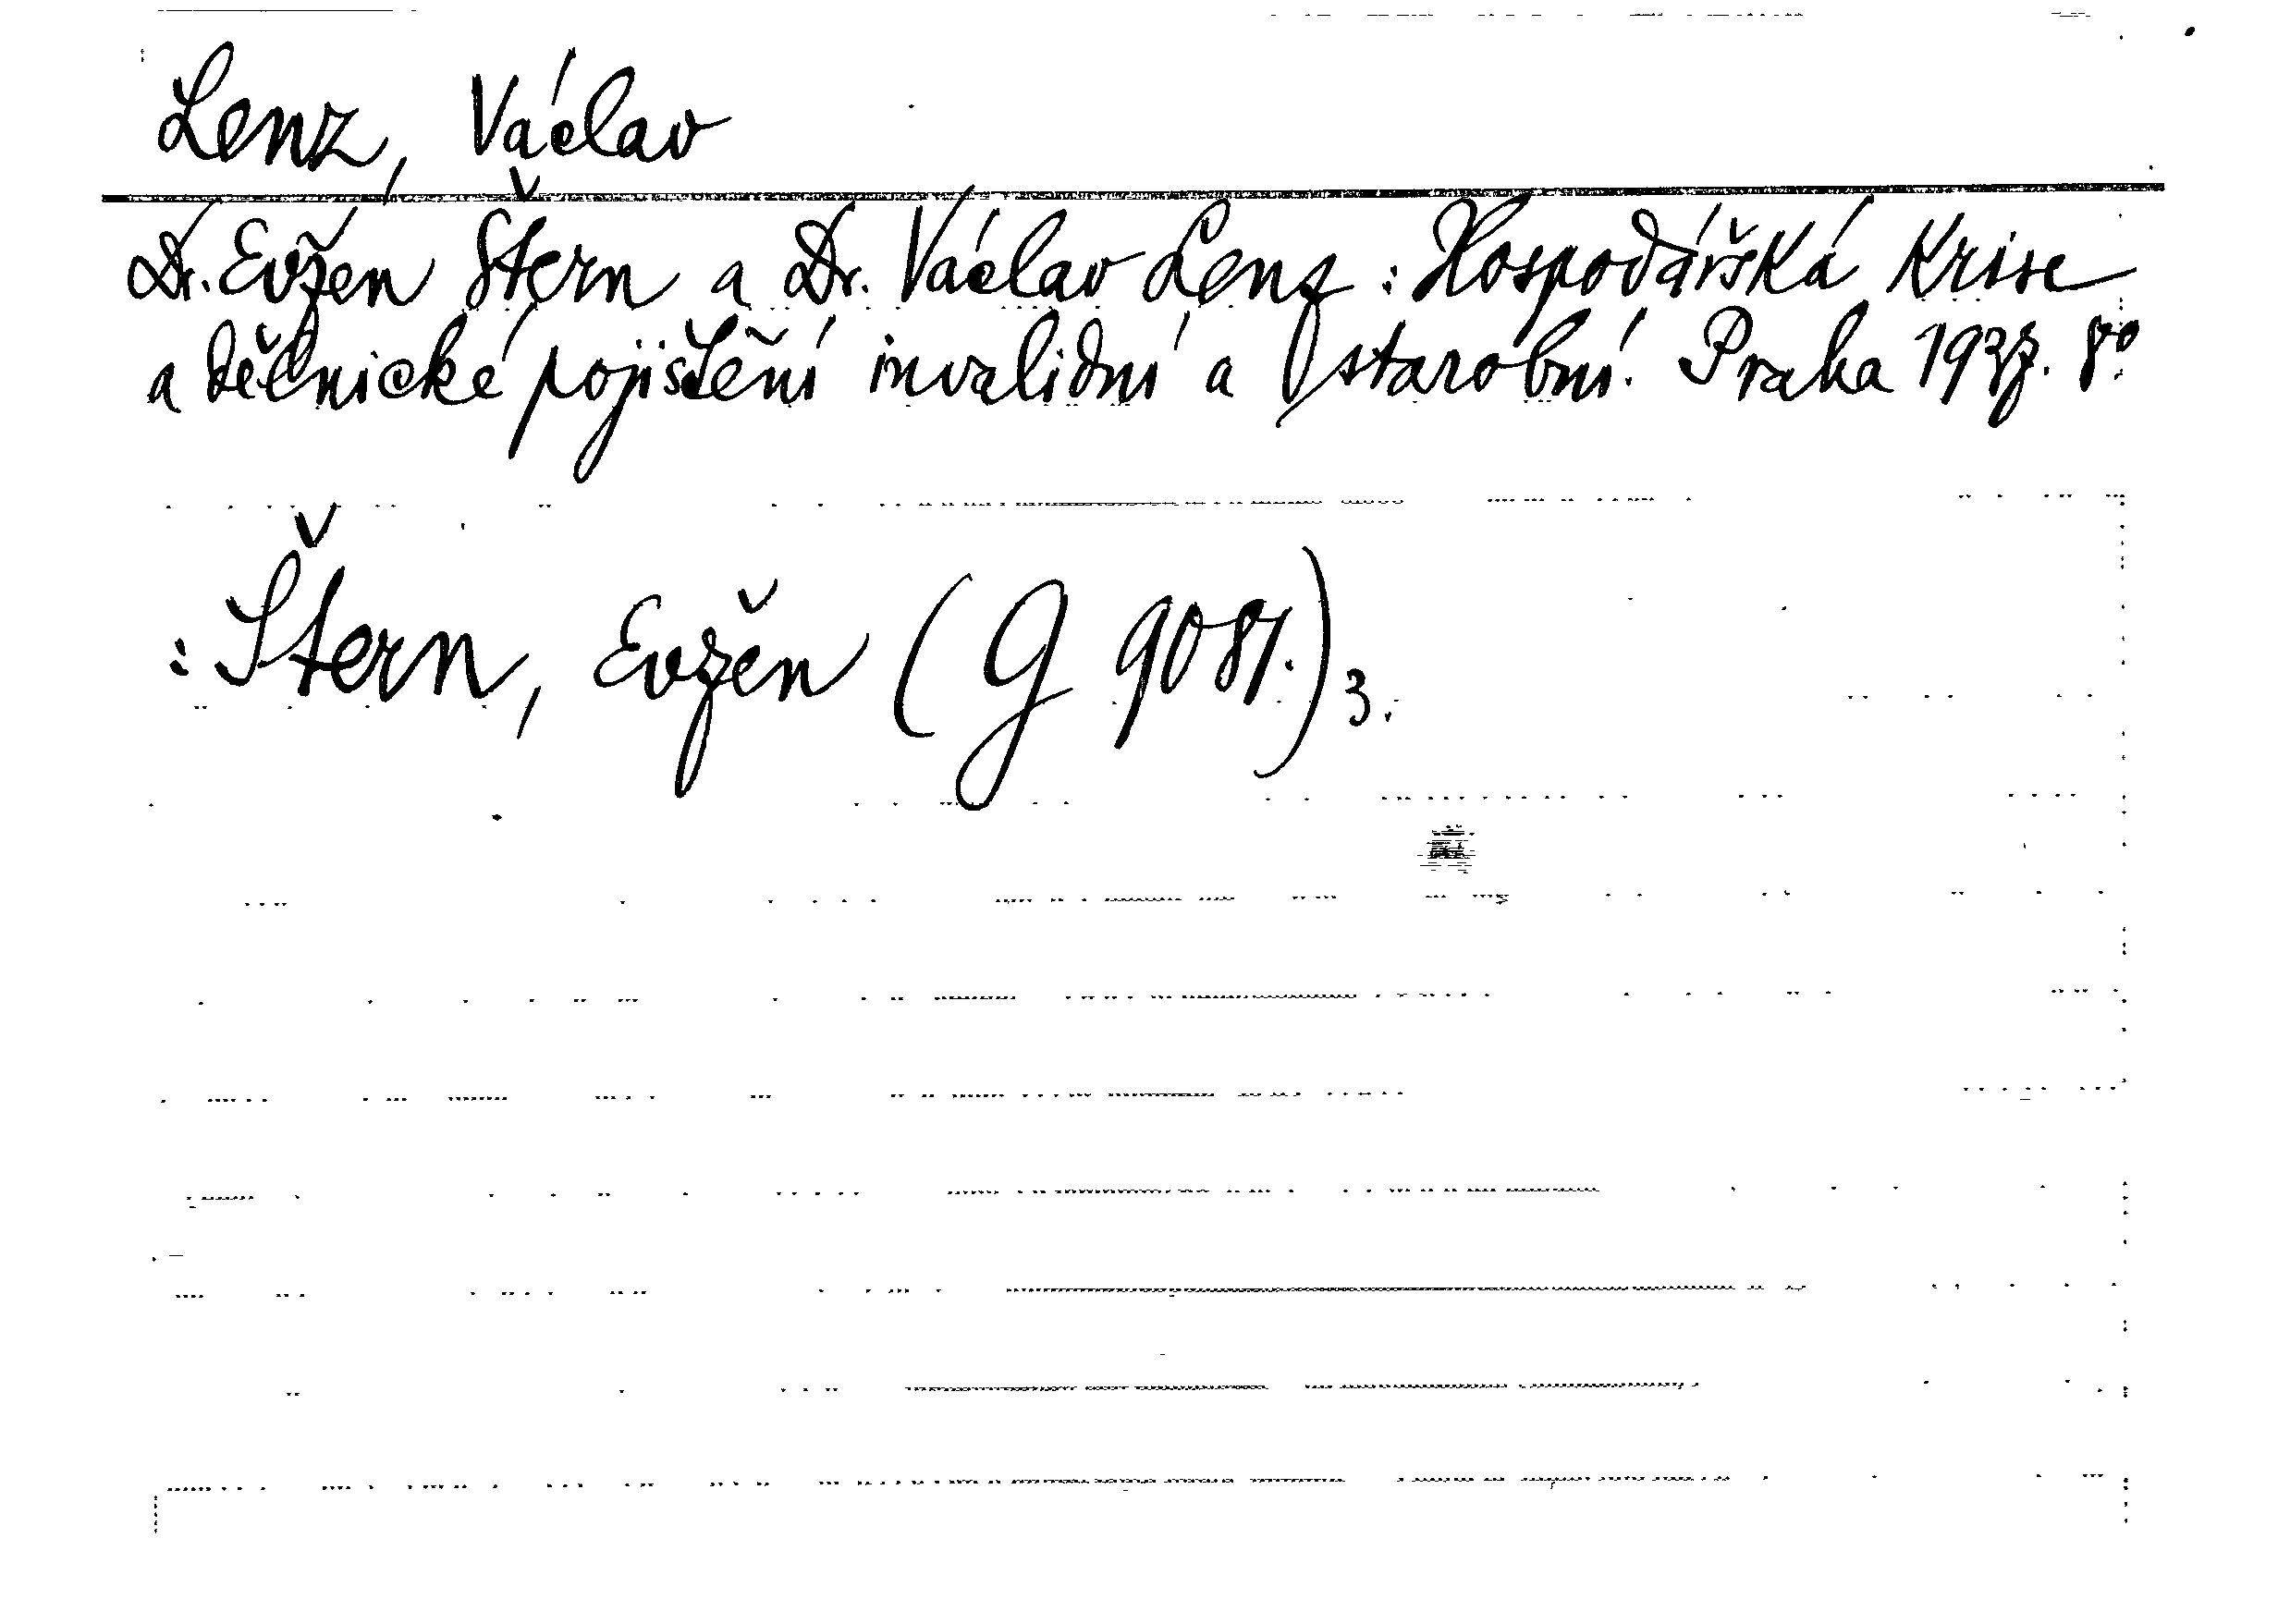 Lenz, Václav
Dr. Evžen Štern a Dr. Václav Lenz: Hospodářská krise
a dělnické pojištění invalidní a starobní. Praha 8°
: Štern, Evžen (G 9087.) 3.